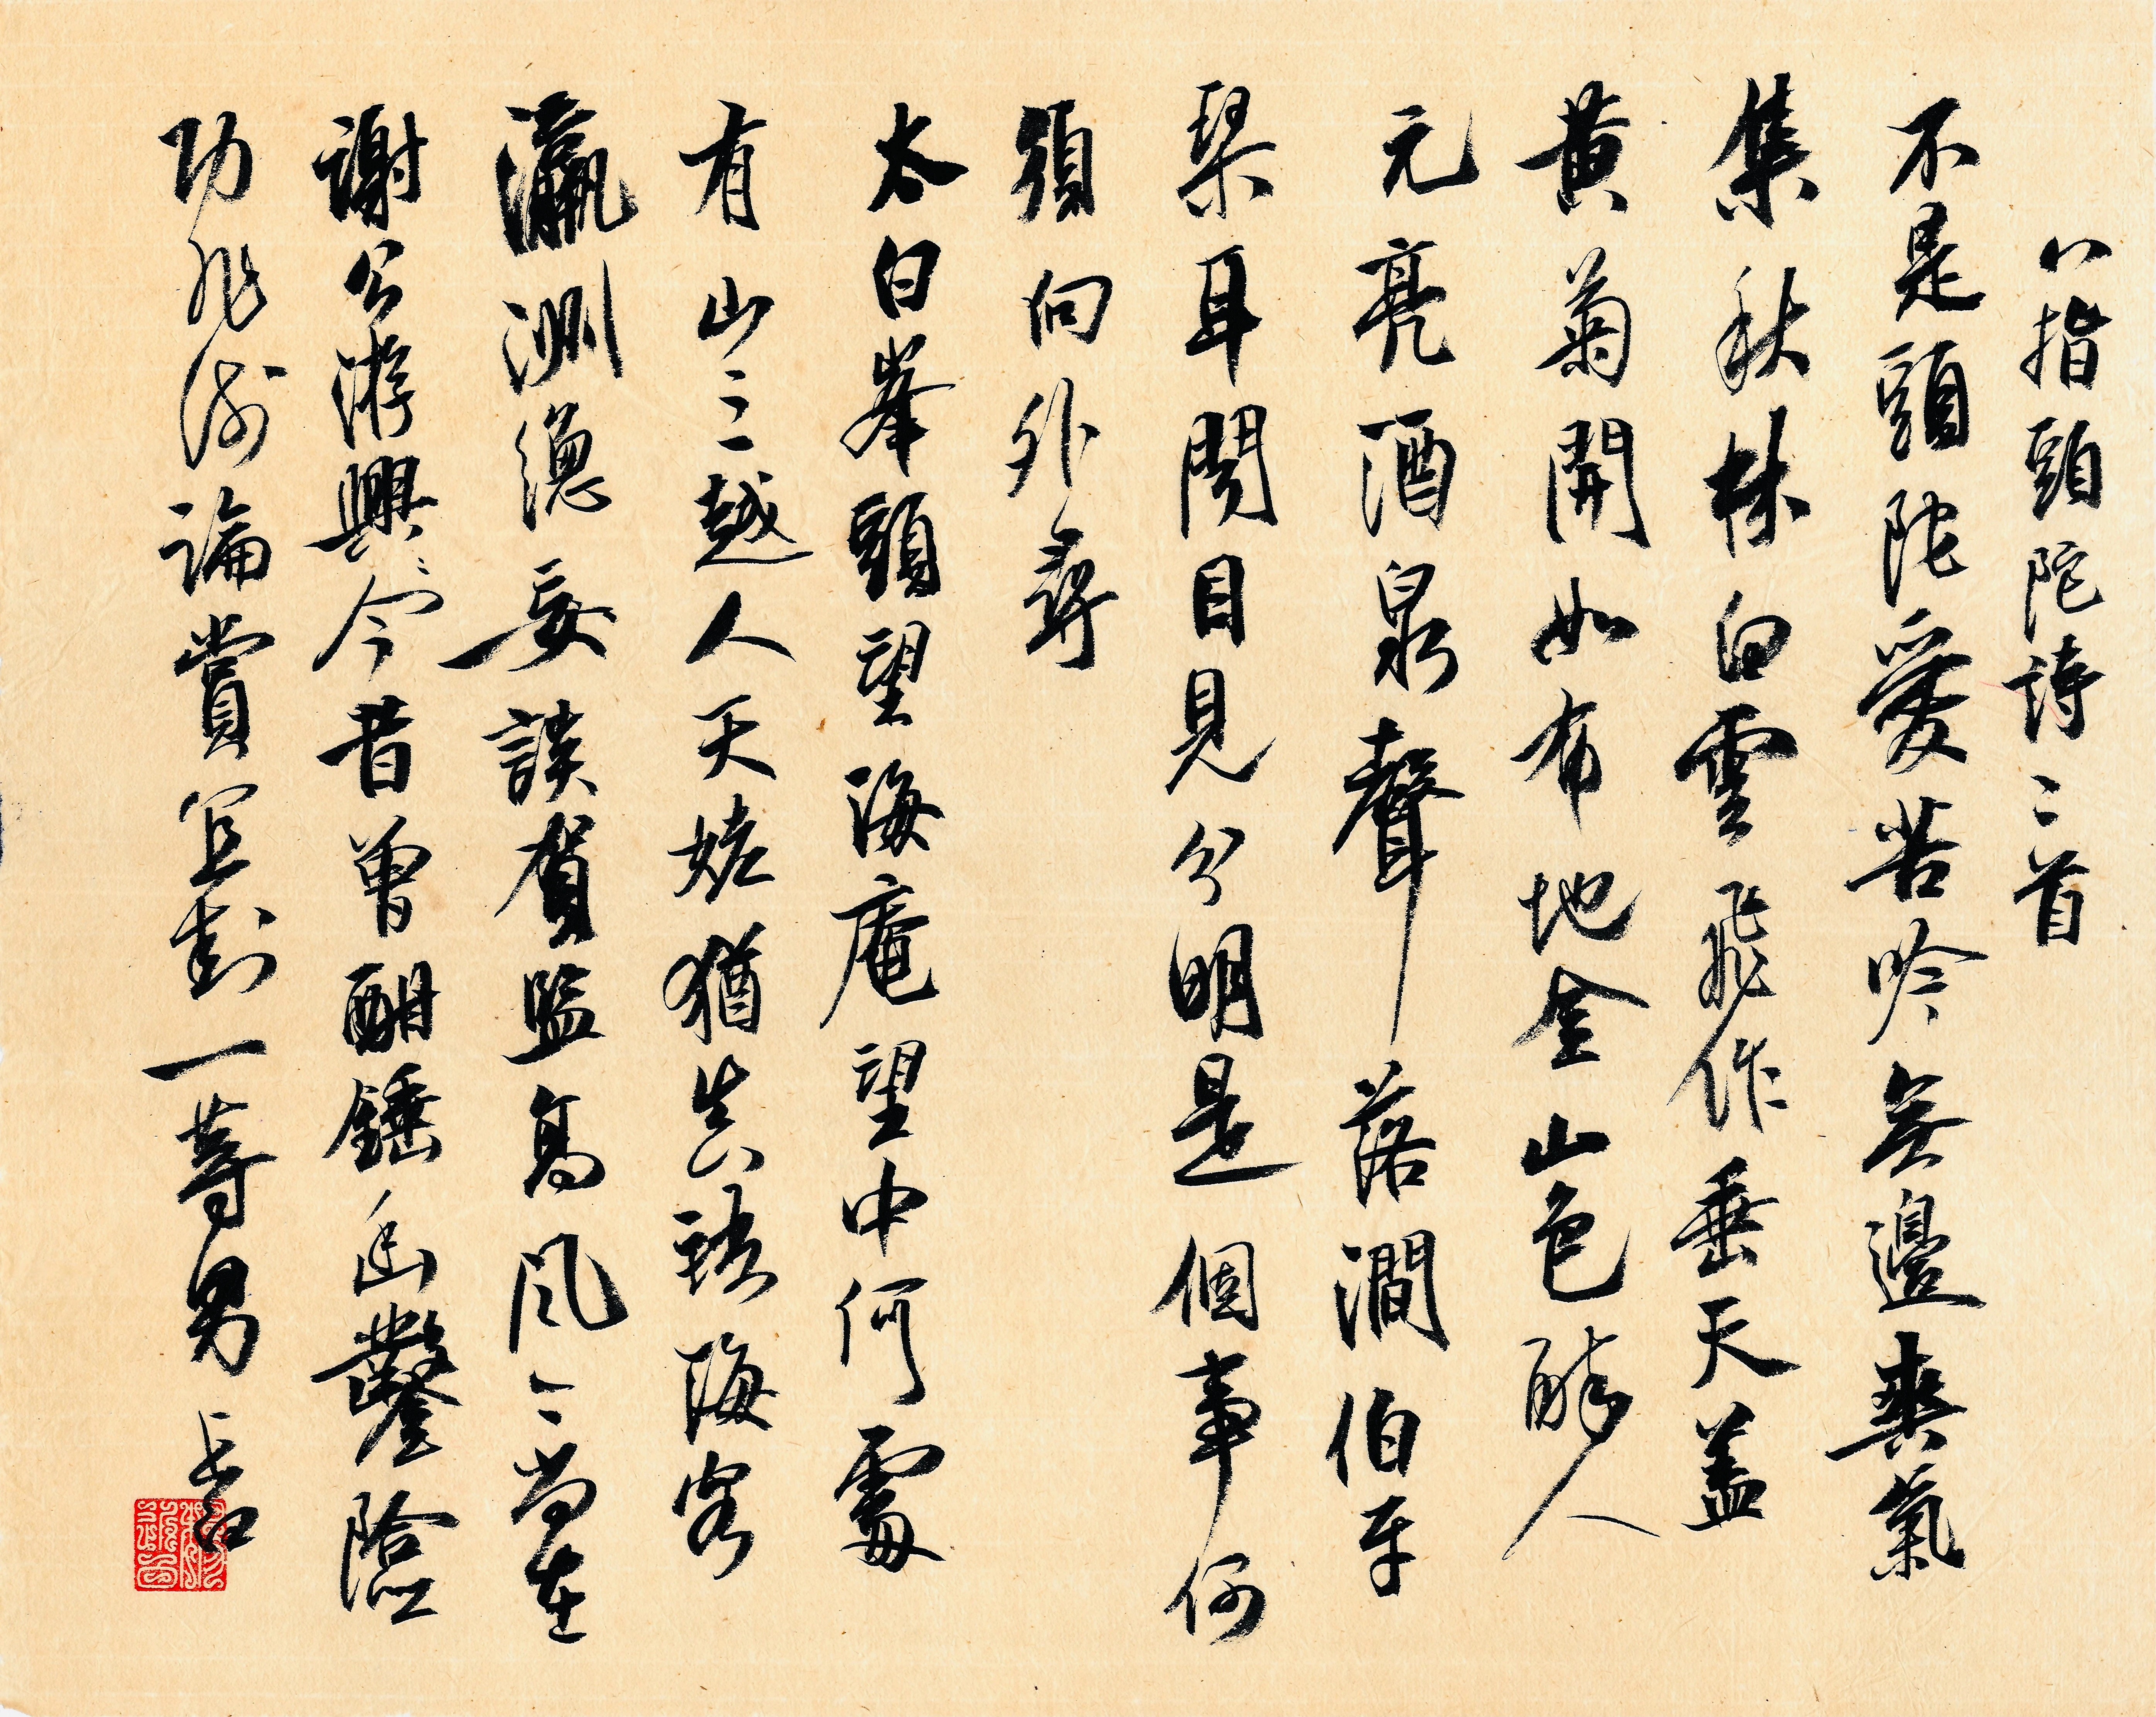 八指頭陀詩二首
不是頭陀愛苦吟無邊爽氣
集秋林白雲飛作垂天蓋
黃菊開如布地金山色醉人
元亮酒泉聲落澗伯牙
琹耳聞目見分明是個事何
須向外尋
太白峯頭望海庵望中何處
有山三越人天姥猶真語海客
瀛洲總妄談賀監高風々尚在
謝公游興今昔曾酣錘幽鑿險
功非淺論賞宜封一等男